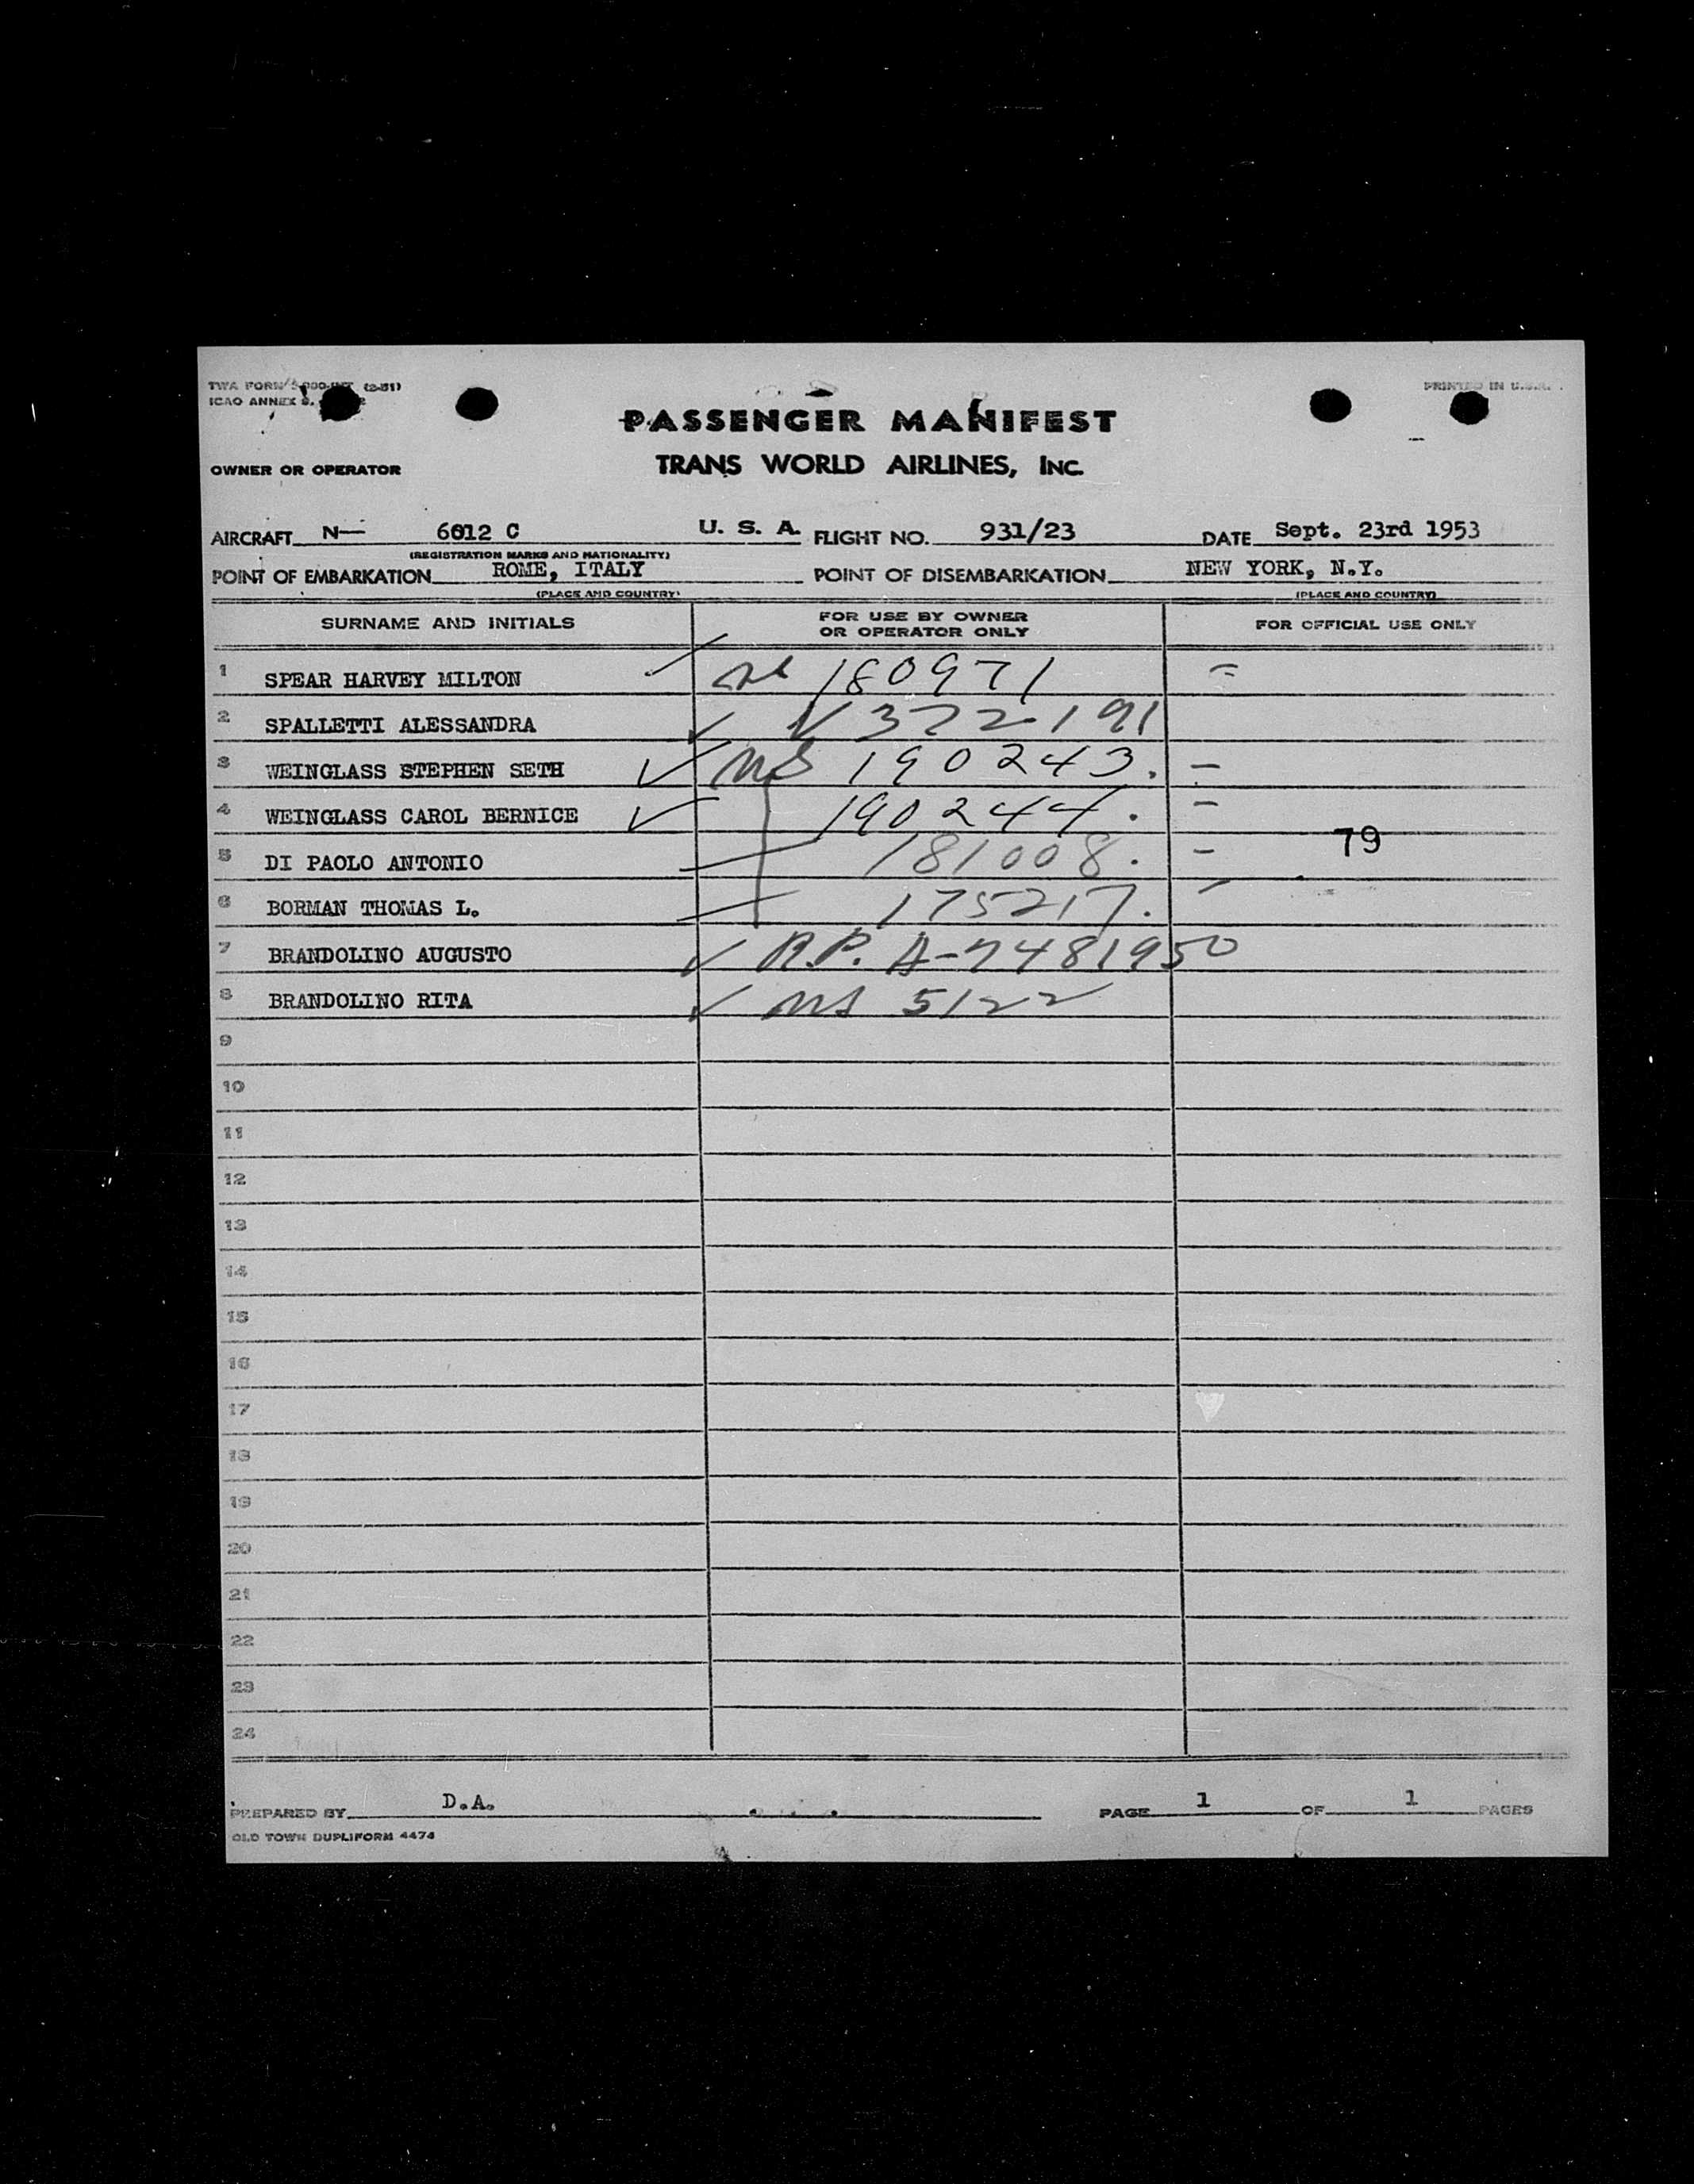 TWA FORM (2-51)
PRINTED IN U.S.A.
ICAO ANNEX 9,
PASSENGER MANIFEST
OWNER OR OPERATOR TRANS WORLD AIRLINES, INC.
AIRCRAFT N— 6012 C U. S. A. FLIGHT NO. 931/23 DATE Sept. 23rd 1953
(REGISTRATION MARKS AND NATIONALITY)
POINT OF EMBARKATION ROME, ITALY POINT OF DISEMBARKATION NEW YORK, N.Y.
(PLACE AND COUNTRY) (PLACE AND COUNTRY)
SURNAME AND INITIALS FOR USE BY OWNER OR OPERATOR ONLY FOR OFFICIAL USE ONLY
1 SPEAR HARVEY MILTON 180971
2 SPALLETTI ALESSANDRA V 372191
3 WEINGLASS STEPHEN SETH NS 190243.
4 WEINGLASS CAROL BERNICE 190244.
79
5 DI PAOLO ANTONIO 181008.
6 BORMAN THOMAS L. 175217.
7 BRANDOLINO AUGUSTO R.P. A-7481950
8 BRANDOLINO RITA 5122
9
10
11
12
13
14
15
16
17
18
19
20
21
22
23
24
PREPARED BY D.A. PAGE 1 OF 1 PAGES
OLD TOWN DUPLIFORM 4474